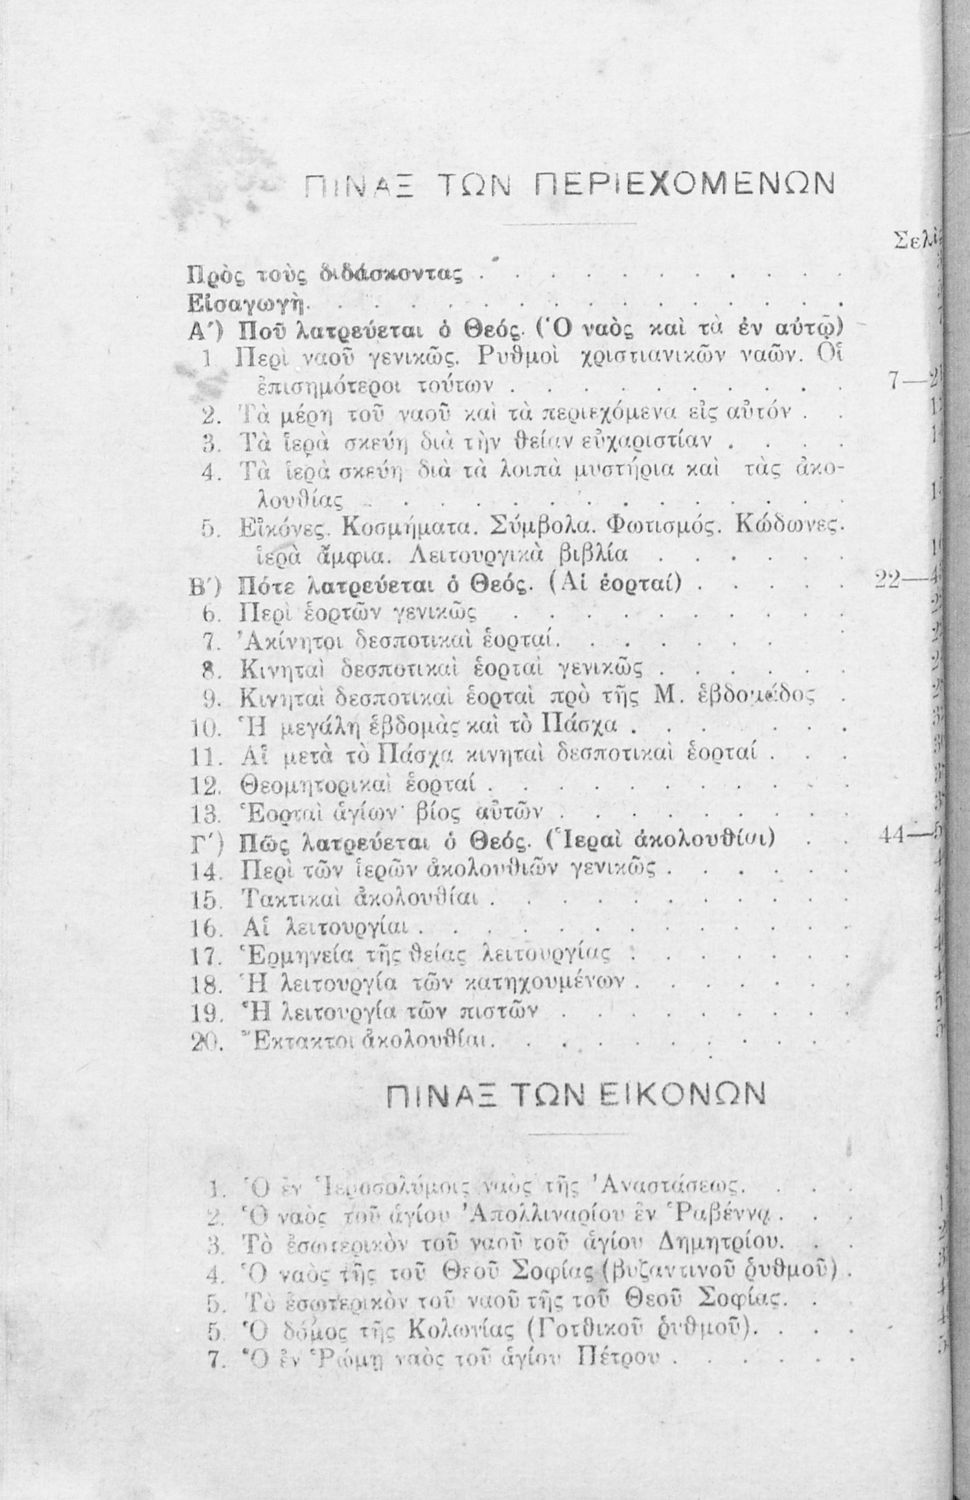 ΠΙΝΑΞ ΤΩΝ ΠΕΡΙΕΧΟΜΕΝΩΝ
Σελὶ
Πρὸς τοὺς διδάσκοντας
Εἰσαγωγὴ
Α΄) Ποῦ λατρεύεται ὁ Θεός. (Ὁ ναὸς καὶ τὰ ἐν αὐτῷ)
1 Περὶ ναοῦ γενικῶς. Ρυθμοὶ χριστιανικῶν ναῶν. Οἱ
ἐπισημότεροι τούτων 7—2
2. Τὰ μέρη τοῦ ναοῦ καὶ τὰ περιεχόμενα εἰς αὐτόν
3. Τὰ ἱερὰ σκεύη διὰ τὴν θείαν εὐχαριστίαν
4. Τὰ ἱερὰ σκεύη διὰ τὰ λοιπὰ μυστήρια καὶ τὰς ἀκο-
λουθίας
5. Εἰκόνες. Κοσμήματα. Σύμβολα. Φωτισμός. Κώδωνες.
ἱερὰ ἄμφια. Λειτουργικὰ βιβλία
Β΄) Πότε λατρεύεται ὁ Θεός. (Αἱ ἑορταί) 22—4
6. Περὶ ἑορτῶν γενικῶς
7. Ἀκίνητοι δεσποτικαὶ ἑορταί.
8. Κινηταὶ δεσποτικαὶ ἑορταὶ γενικῶς
9. Κινηταὶ δεσποτικαὶ ἑορταὶ πρὸ τῆς Μ. ἑβδομάδος
10. Ἡ μεγάλη ἑβδομὰς καὶ τὸ Πάσχα
11. Αἱ μετὰ τὸ Πάσχα κινηταὶ δεσποτικαὶ ἑορταί
12. Θεομητορικαὶ ἑορταί
13. Ἑορταὶ ἁγίων· βίος αὐτῶν
Γ΄) Πῶς λατρεύεται ὁ Θεός. (Ἱεραὶ ἀκολουθίαι) 44—5
14. Περὶ τῶν ἱερῶν ἀκολουθιῶν γενικῶς
15. Τακτικαὶ ἀκολουθίαι
16. Αἱ λειτουργίαι
17. Ἑρμηνεία τῆς θείας λειτουργίας
18. Ἡ λειτουργία τῶν κατηχουμένων
19. Ἡ λειτουργία τῶν πιστῶν
20. Ἔκτακτοι ἀκολουθίαι.
ΠΙΝΑΞ ΤΩΝ ΕΙΚΟΝΩΝ
1. Ὁ ἐν Ἱεροσολύμοις ναὸς τῆς Ἀναστάσεως.
2. Ὁ ναὸς τοῦ ἁγίου Ἀπολλιναρίου ἐν Ῥαβέννᾳ
3. Τὸ ἐσωτερικὸν τοῦ ναοῦ τοῦ ἁγίου Δημητρίου.
4. Ὁ ναὸς τῆς τοῦ Θεοῦ Σοφίας (βυζαντινοῦ ῥυθμοῦ)
5. Τὸ ἐσωτερικὸν τοῦ ναοῦ τῆς τοῦ Θεοῦ Σοφίας.
5 Ὁ δόμος τῆς Κολωνίας (Γοτθικοῦ ῥυθμοῦ).
7. Ὁ ἐν Ῥώμῃ ναὸς τοῦ ἁγίου Πέτρου